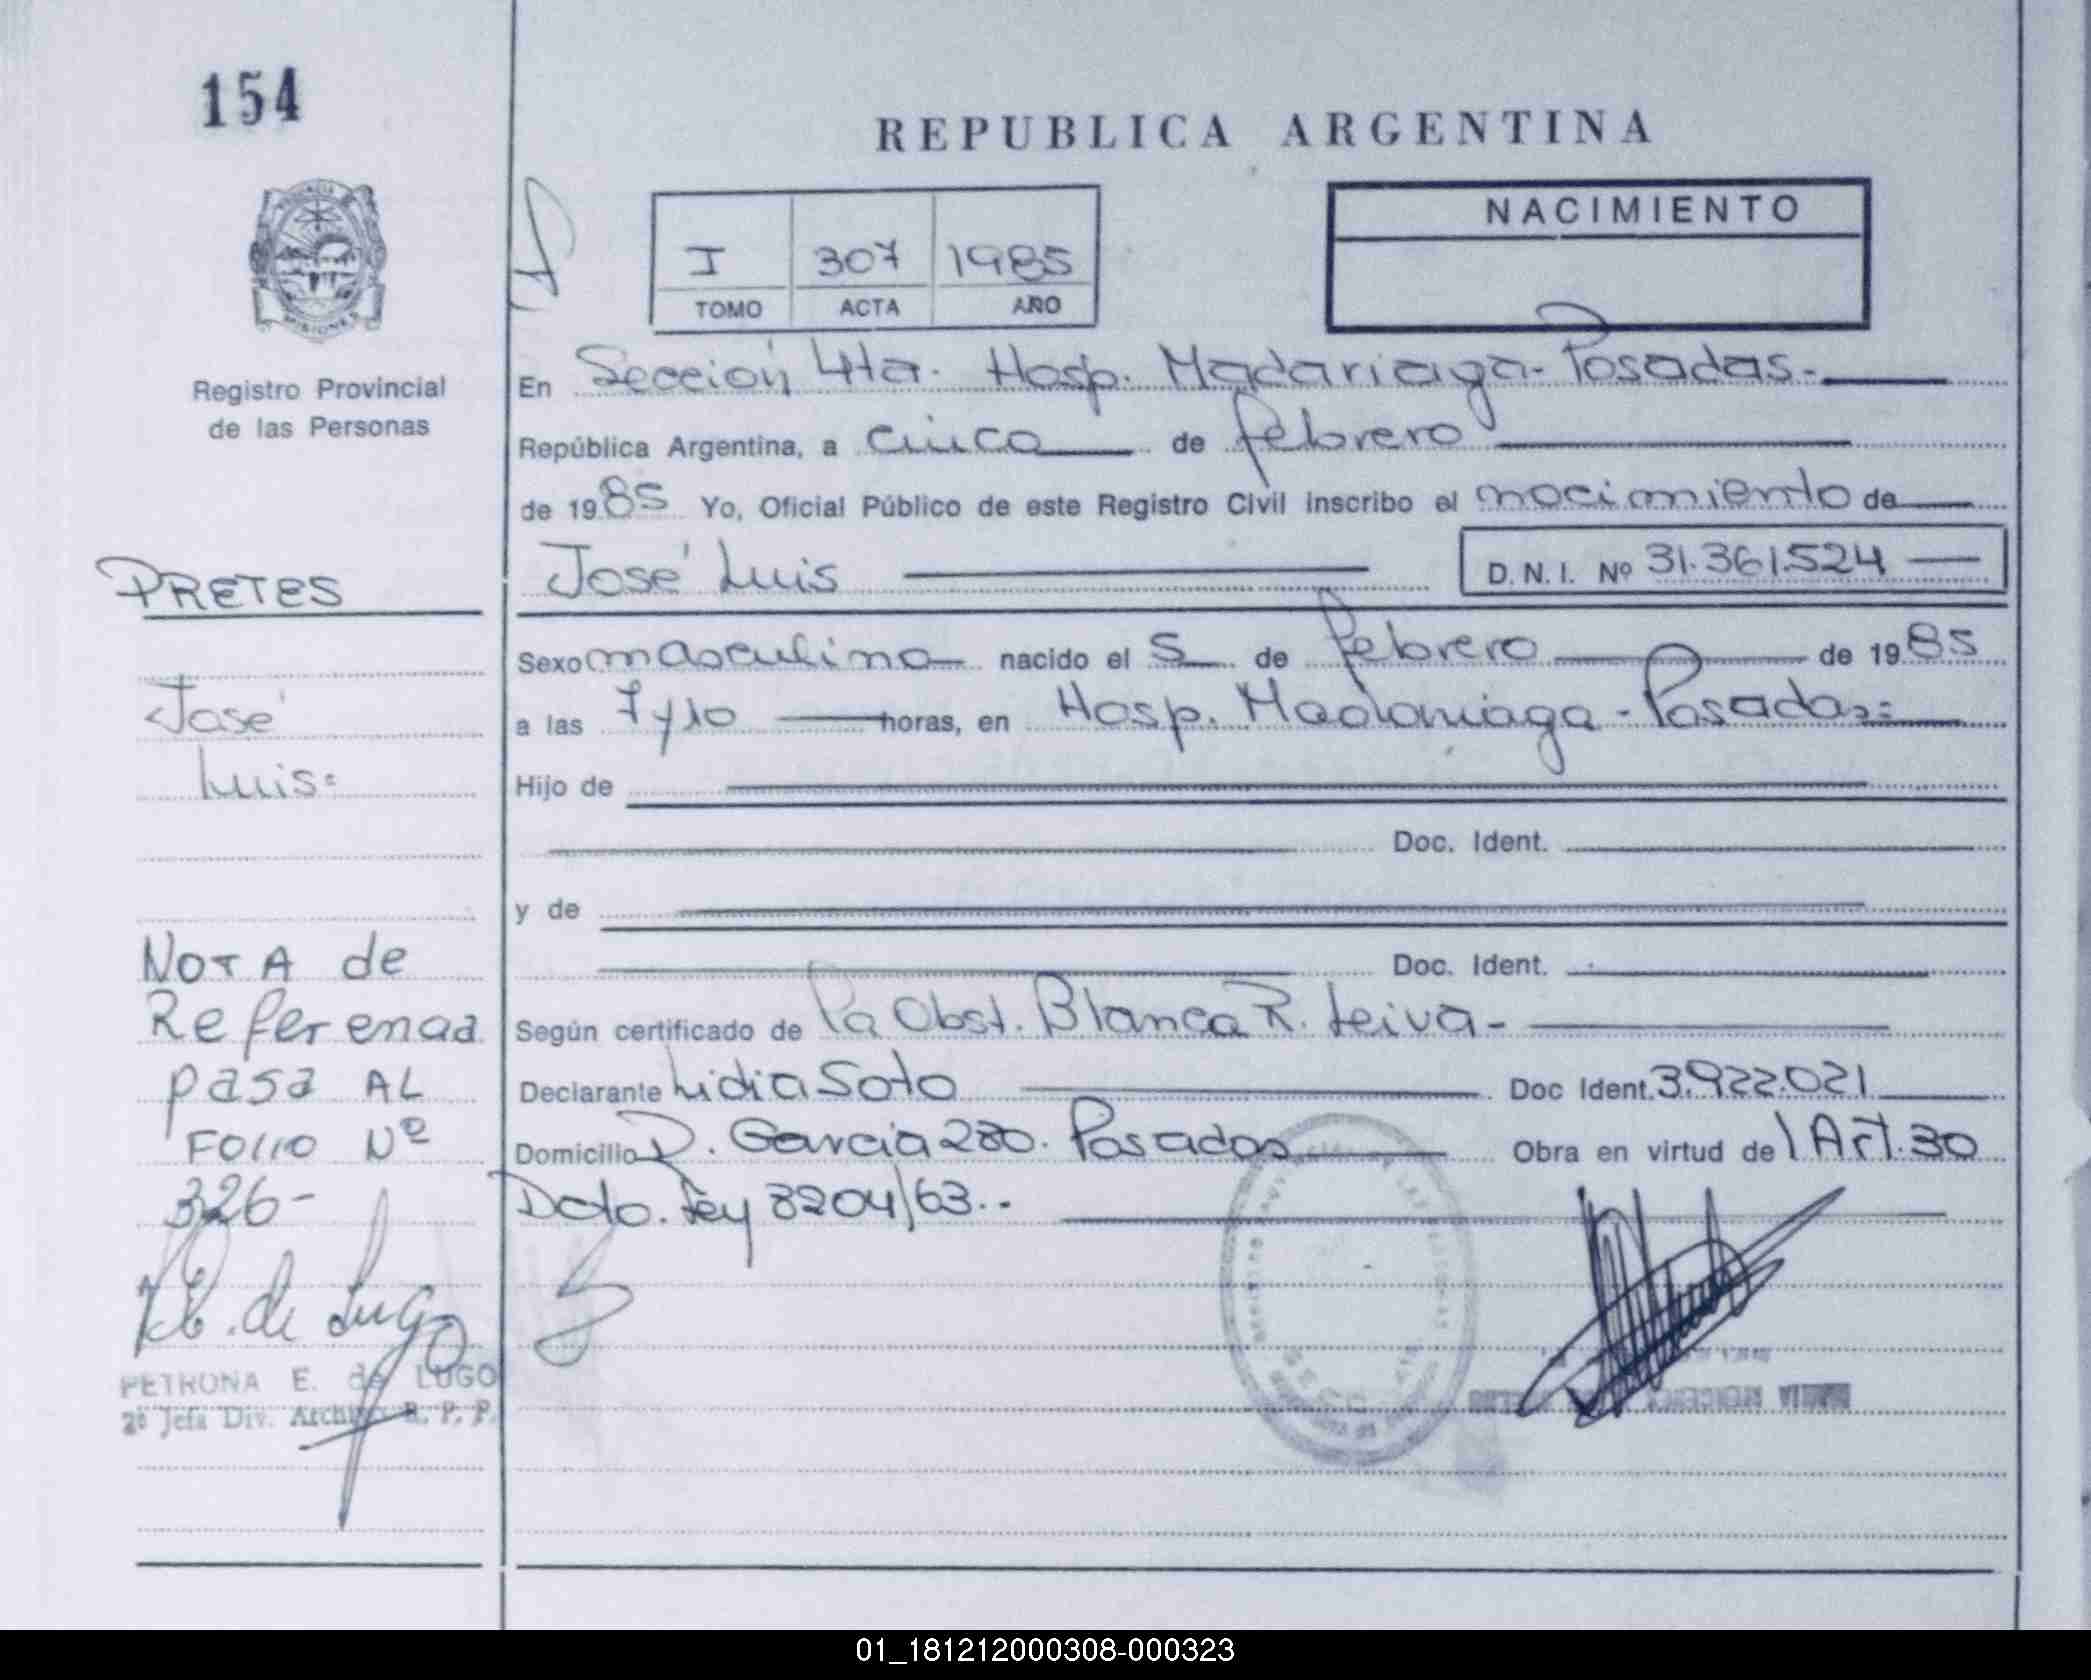 154
REPUBLICA ARGENTINA
NACIMIENTO
I 307 1985
TOMO ACTA AÑO
MISIONES
Registro Provincial
de las Personas
En Sección 4ta. Hosp. Madariaga - Posadas.-
República Argentina, a cinco de febrero
de 1985 Yo, Oficial Público de este Registro Civil inscribo el nacimiento de
José Luis D.N.I. Nº 31.361.524
PRETES
José
Luis=
Sexo masculino nacido el 5 de febrero de 1985
a las 7 y 10 horas, en Hosp. Madariaga - Posadas=
Hijo de
Doc. Ident.
y de
Doc. Ident.
Según certificado de la Obst. Blanca R. Leiva-
Declarante Lidia Soto Doc Ident. 3.922.021
Domicilio R. Garcia 280. Posadas Obra en virtud del Art. 30
Dcto. Ley 8204/63.-
NOTA de
Referencia
pasa AL
FOLIO Nº
326-
PETRONA E. de LUGO
2º Jefa Div. Archivo R. P. P.
01_181212000308-000323